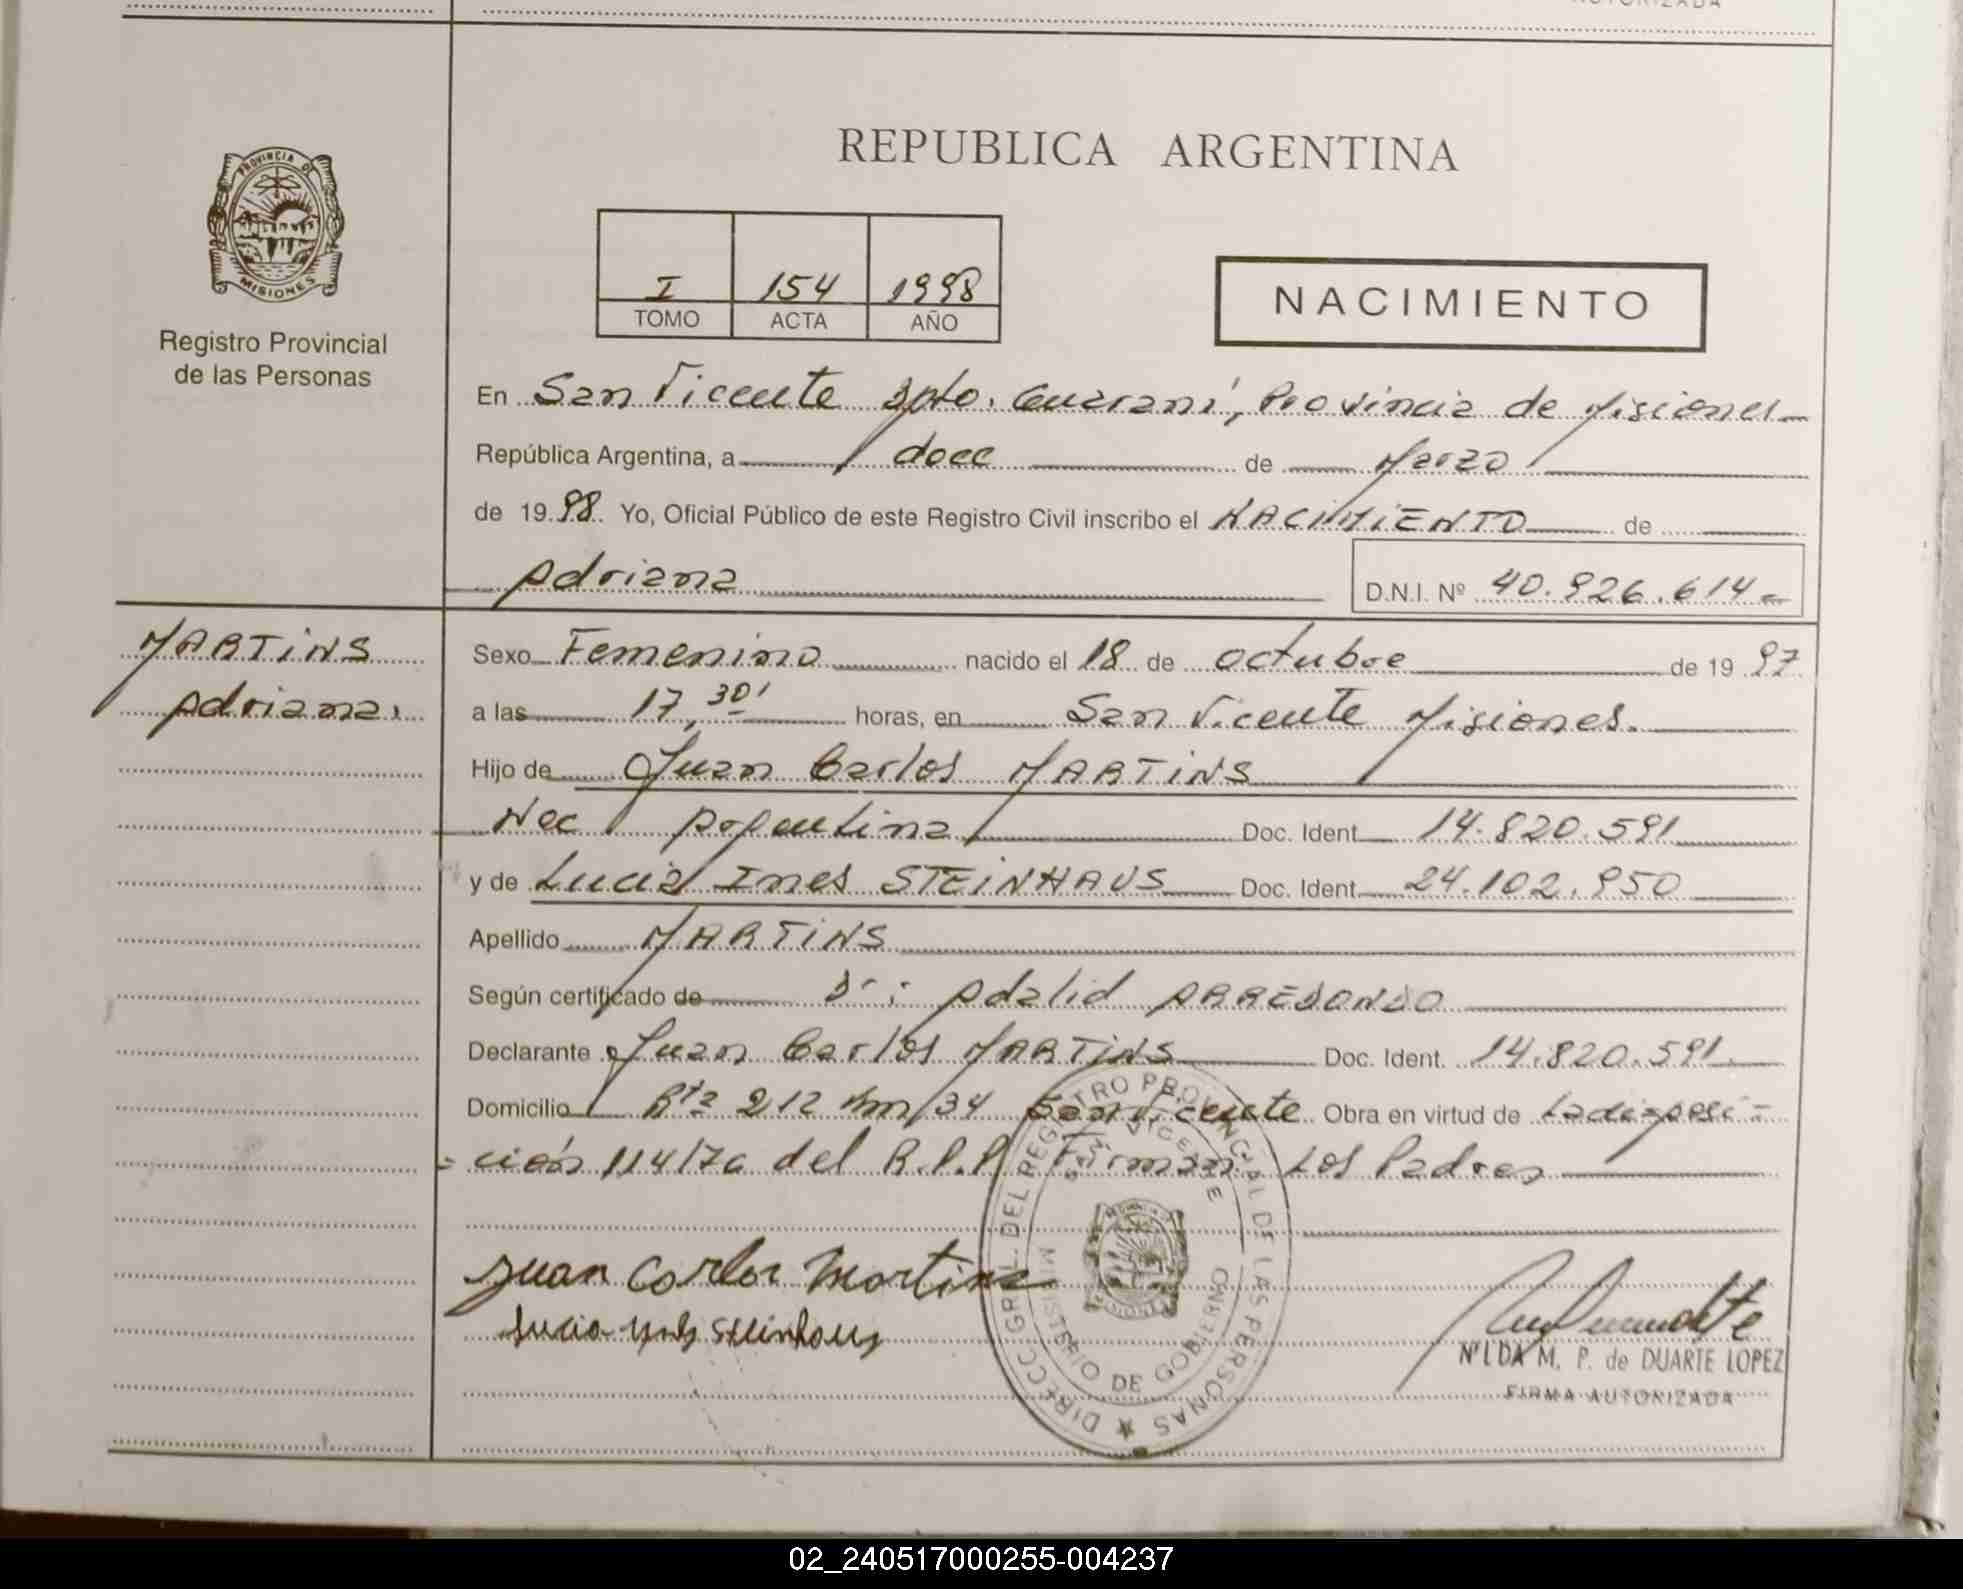 REPUBLICA ARGENTINA
PROVINCIA DE
MISIONES
Registro Provincial
de las Personas
I 154 1998
TOMO ACTA AÑO
NACIMIENTO
En San Vicente Dpto. Guaraní, Provincia de Misiones
República Argentina, a doce de Marzo
de 1998. Yo, Oficial Público de este Registro Civil inscribo el NACIMIENTO de
Adriana D.N.I. Nº 40.926.614.-
MARTiNS
Adriana.
Sexo Femenino nacido el 18 de octubre de 1997
a las 17,30' horas, en San Vicente Misiones.
Hijo de Juan Carlos MARTiNS
Nac Argentina Doc. Ident. 14.820.591
y de Lucia Ines STEiNHAUS Doc. Ident. 24.102.950
Apellido MARTiNS
Según certificado de Dr: Adalid ARREDONDO
Declarante Juan Carlos MARTiNS Doc. Ident. 14.820.591.
Domicilio Rta 212 Km 34 San Vicente Obra en virtud de La disposi=
=ción 114/76 del R.P.P. Firman: Los Padres
Juan Carlos Martins
Lucia Ines Steinhaus
DIRECC. GRAL. DEL REGISTRO PROVINCIAL DE LAS PERSONAS
SAN VICENTE
MINISTERIO DE GOBIERNO
NILDA M. P. de DUARTE LOPEZ
FIRMA AUTORIZADA
02_240517000255-004237